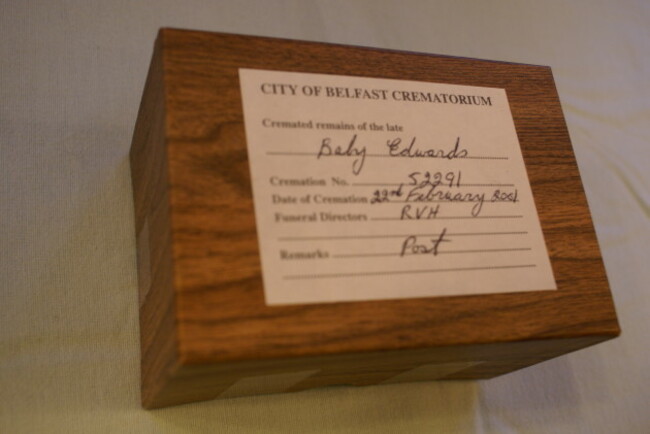 CITY OF BELFAST CREMATORIUM
Cremated remains of the late
Baby Edwards
Cremation No. 52291
Date of Cremation 22nd February 2001
Funeral Directors RVH
Remarks Post